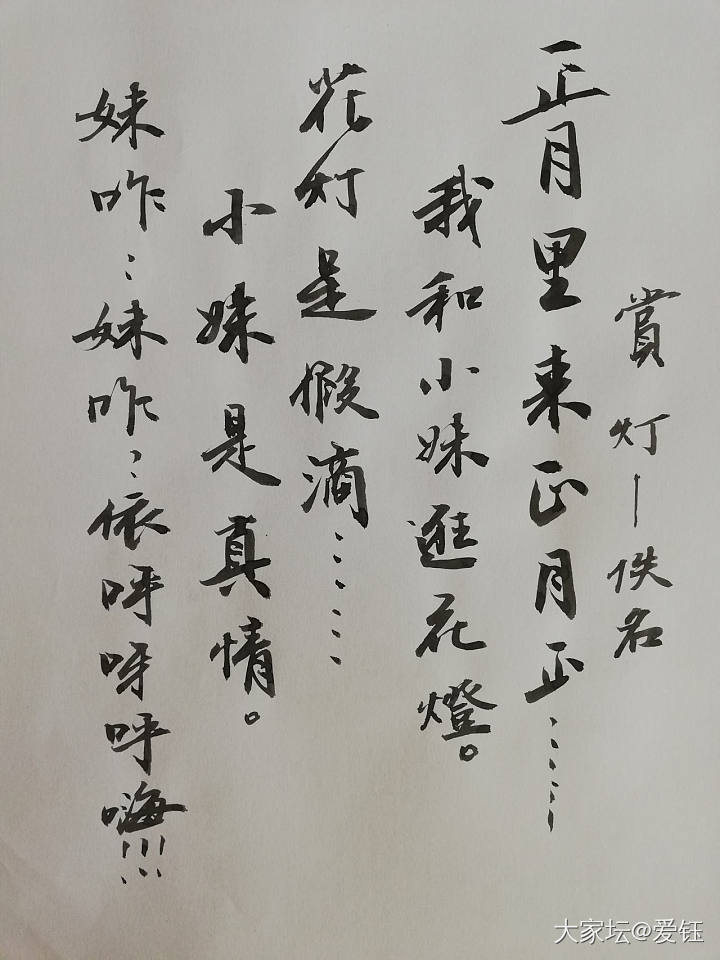 賞灯—佚名
正月里来正月正……
我和小妹逛花燈。
花灯是假滴……
小妹是真情。
妹咋：妹咋：依呼呀呼嗨!!!
大家坛@爱钰